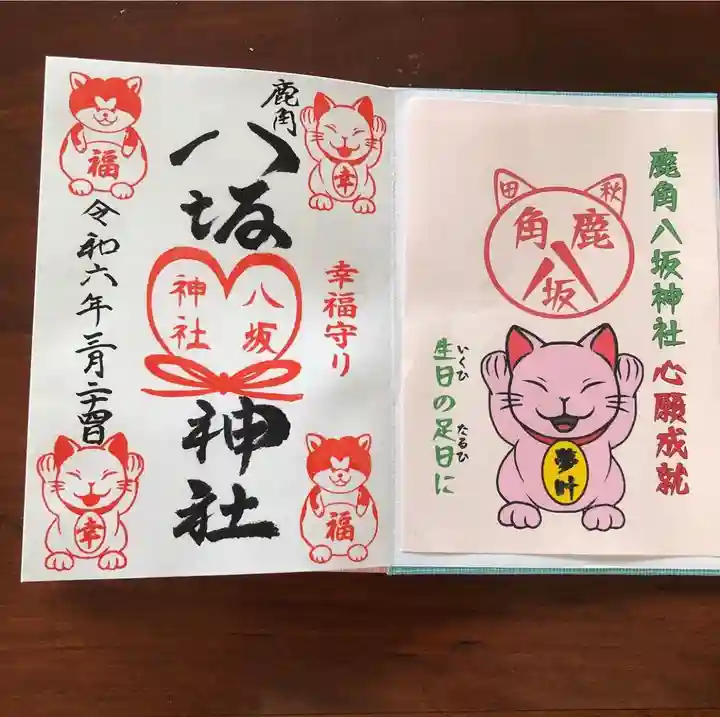 鹿角八坂神社 心願成就
秋田
鹿角
八坂
夢叶
いくひ たるひ
生日の足日に
鹿角
八坂神社
幸
幸福守り
福
八坂
神社
福
幸
令和六年三月二十四日